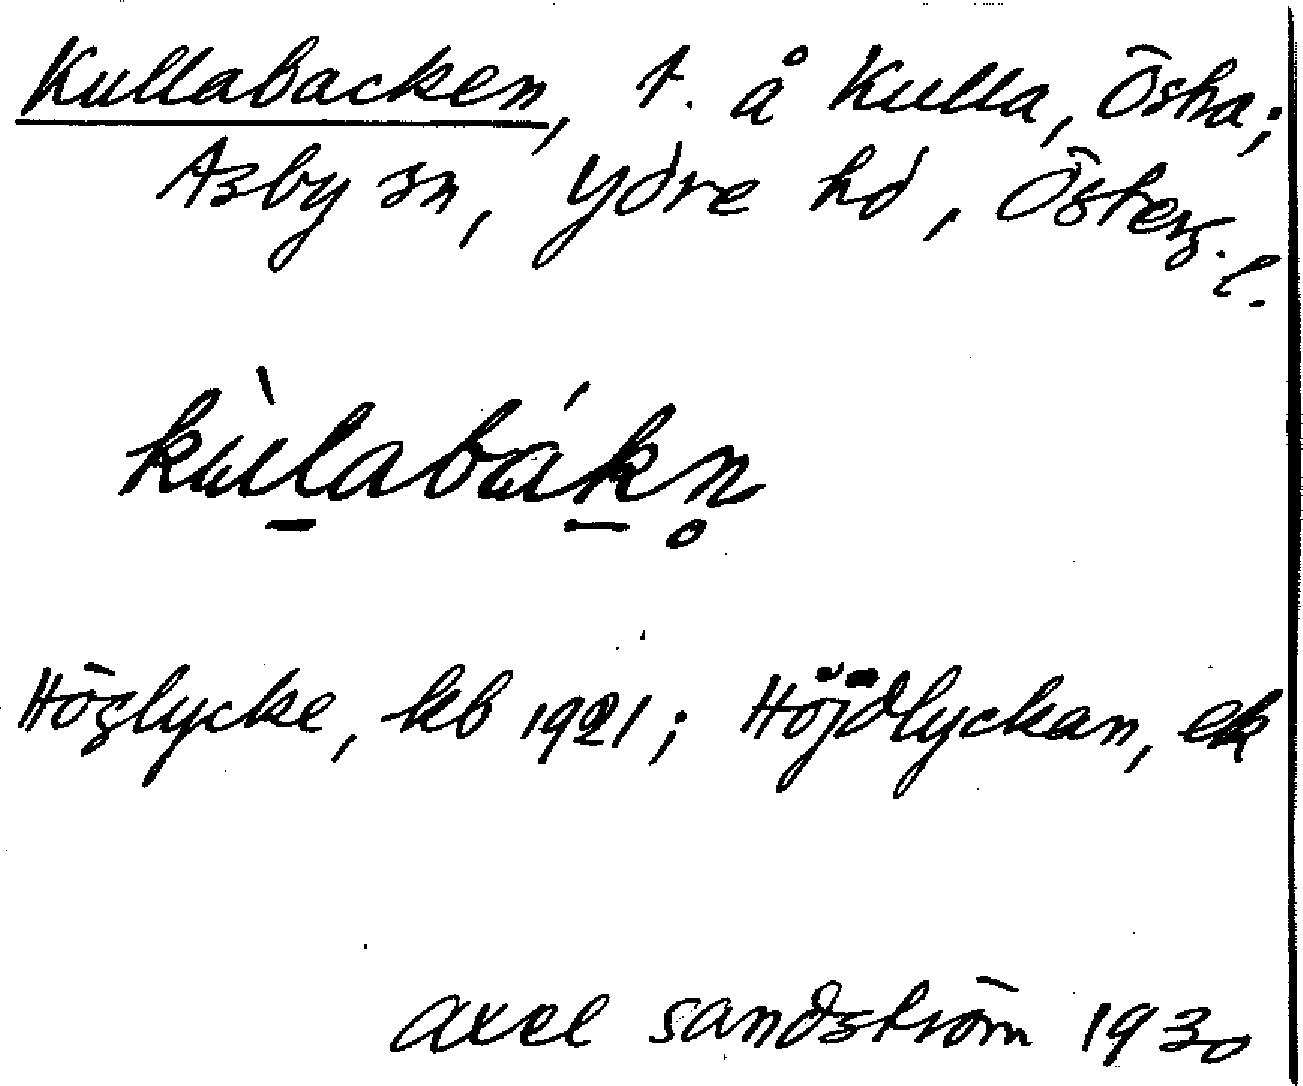 Kullabacken, t. å Kulla, Östra;
Asby sn, Ydre hd, Österg.
l.
kùlabákn̥
Höglycke, kb 1921; Höjdlyckan, ek
Axel Sandström 1930